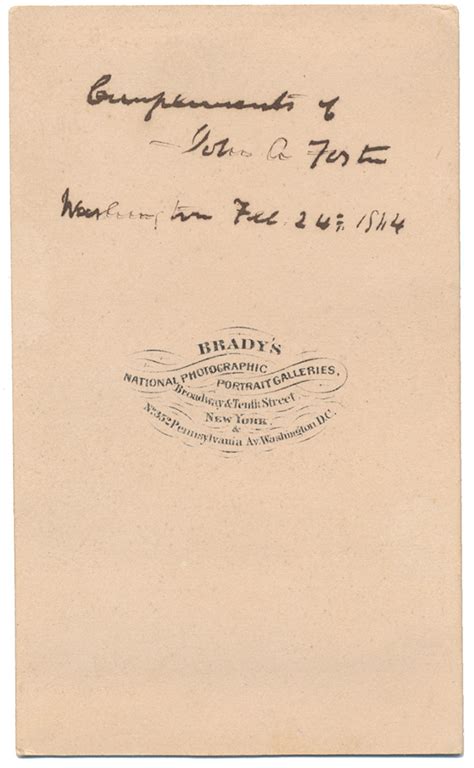 Compliments of
John A Foster
Washington Feb. 24th, 1864
BRADY'S
NATIONAL PHOTOGRAPHIC
PORTRAIT GALLERIES,
Broadway & Tenth Street
NEW YORK
&
No. 352 Pennsylvania Av. Washington D.C.